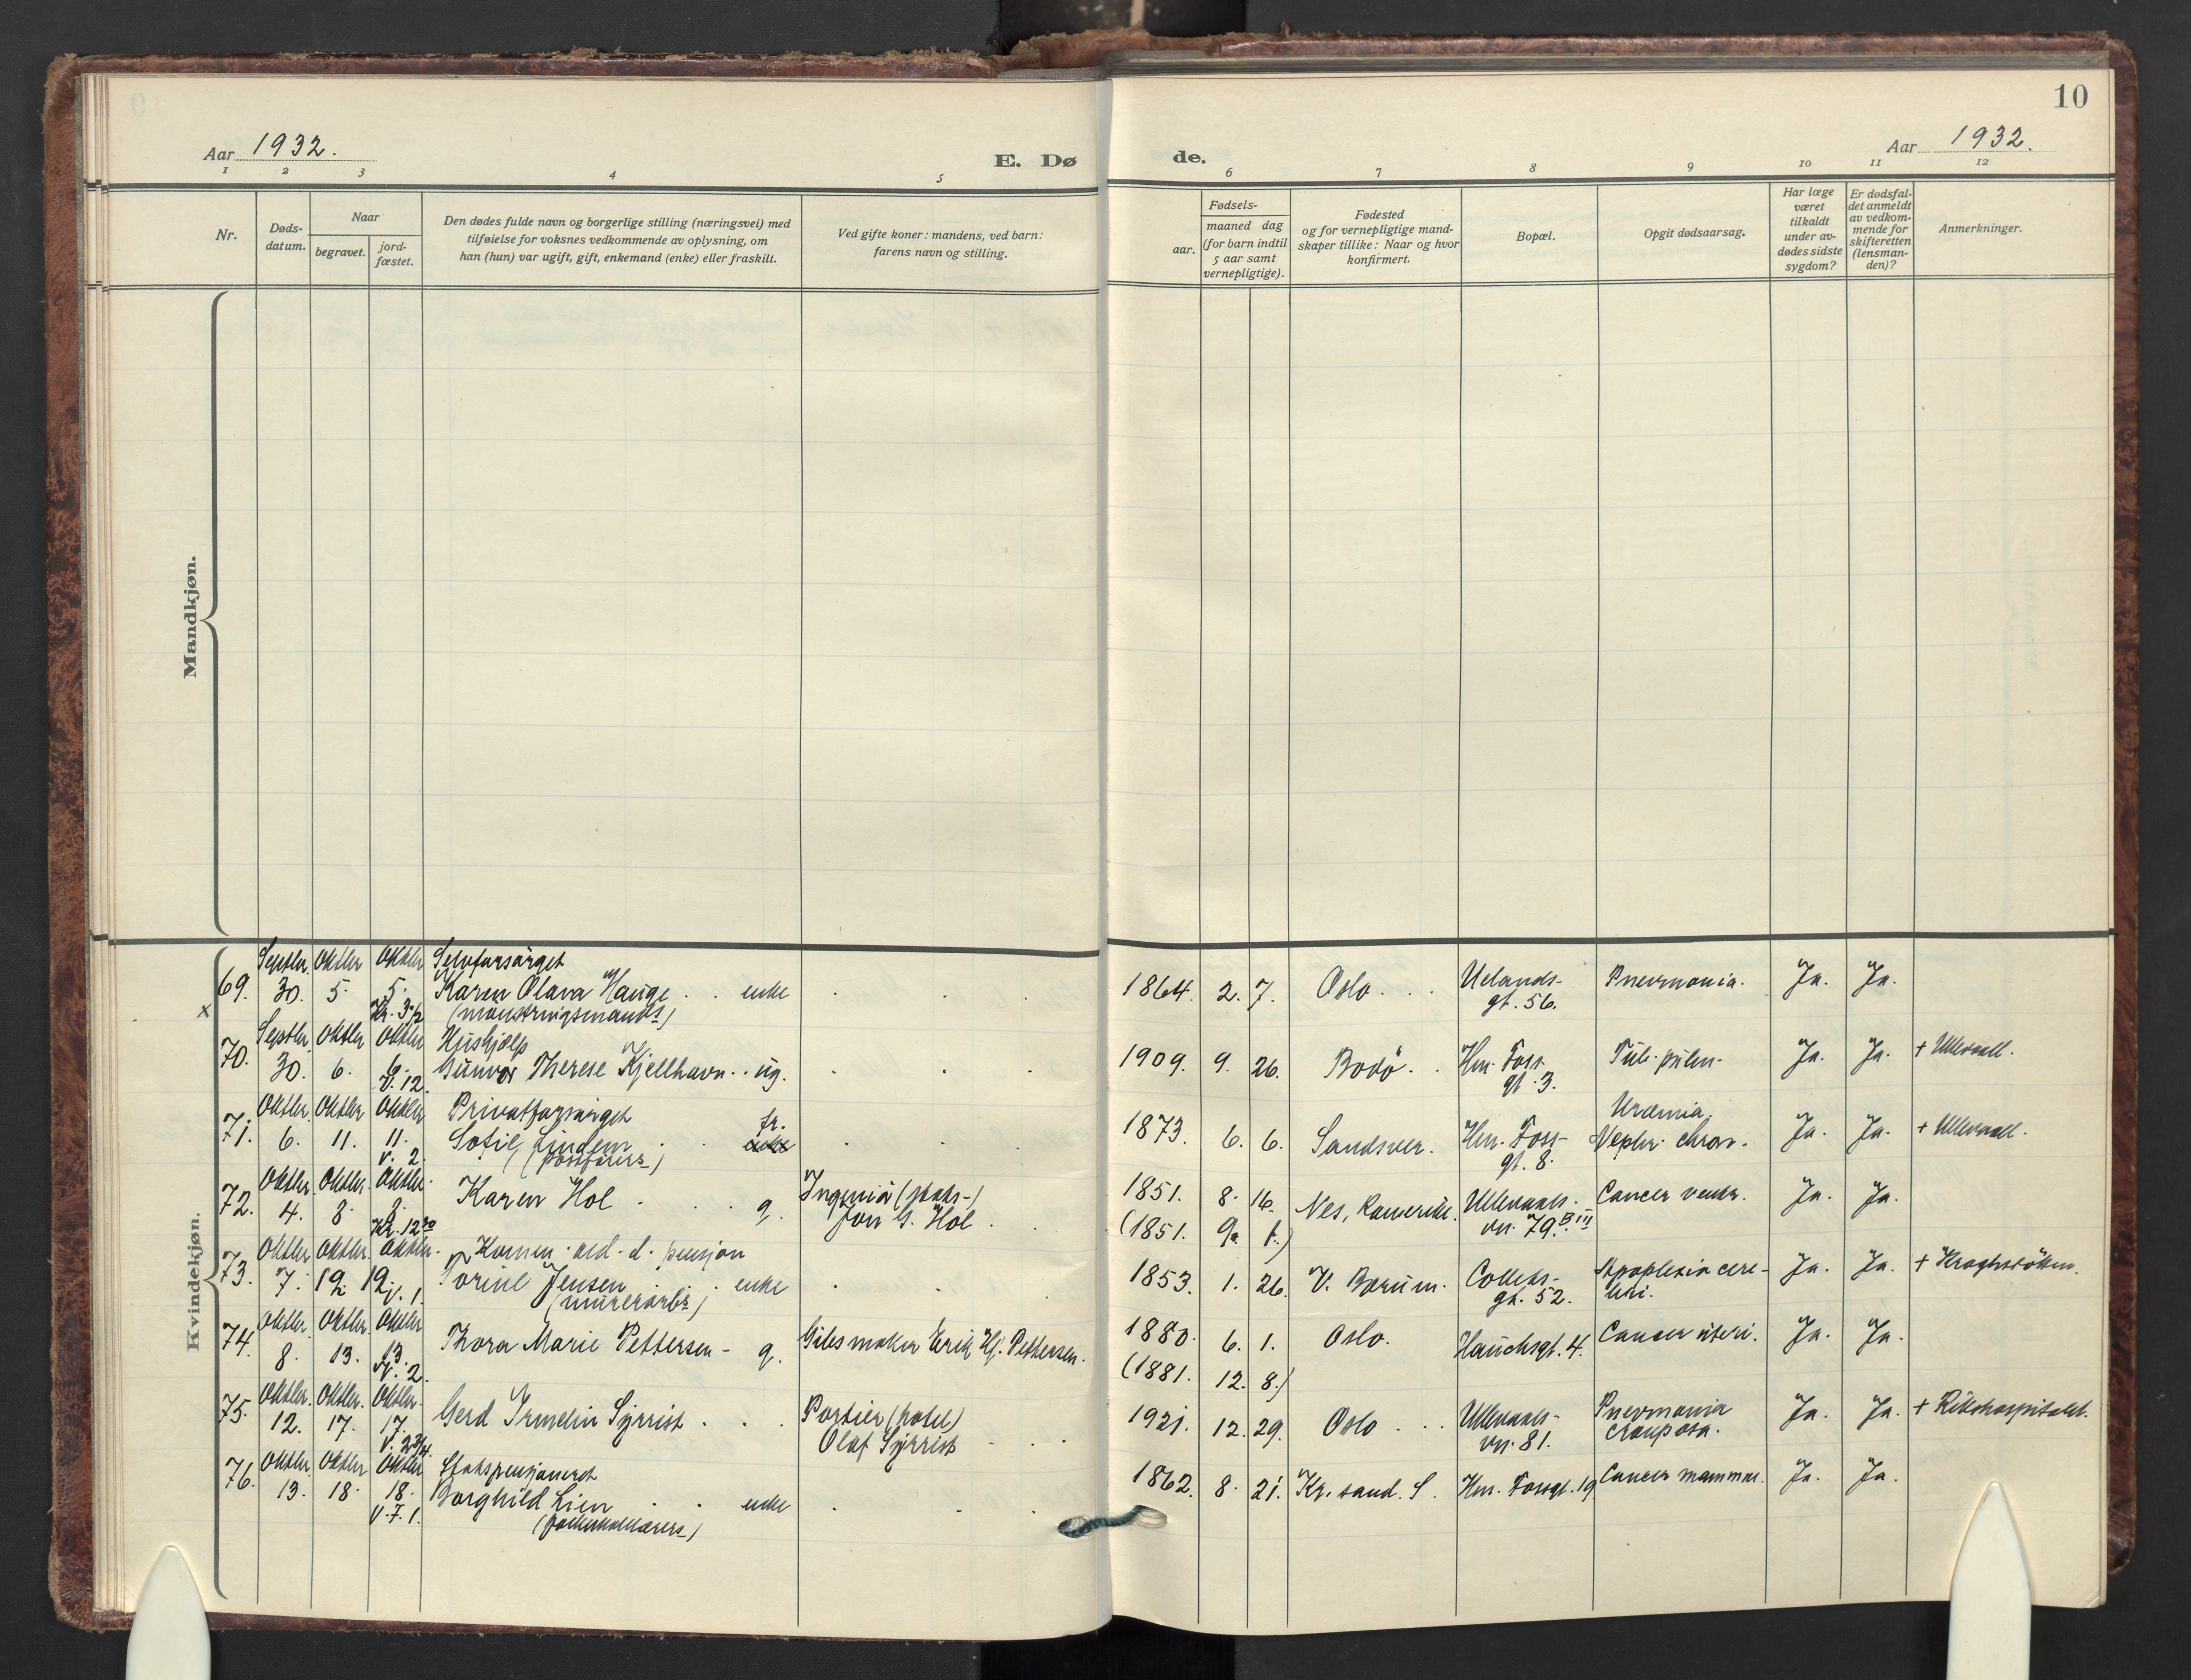 10
Aar 1932.
E. Dø
de.
Aar 1932.
1 2 3 4 5 6 7 8 9 10 11 12
Nr.
Døds-
datum.
Naar
begravet.
jord-
fæstet.
Den dødes fulde navn og borgerlige stilling (næringsvei) med
tilføielse for voksnes vedkommende av oplysning, om
han (hun) var ugift, gift, enkemand (enke) eller fraskilt.
Ved gifte koner: mandens, ved barn:
farens navn og stilling.
Fødsels-
aar.
maaned dag
(for barn indtil
5 aar samt
vernepligtige).
Fødested
og for vernepligtige mand-
skaper tillike: Naar og hvor
konfirmert.
Bopæl.
Opgit dødsaarsag.
Har læge
været
tilkaldt
under av-
dødes sidste
sygdom?
Er dødsfal-
det anmeldt
av vedkom-
mende for
skifteretten
(lensman-
den)?
Anmerkninger.
Mandkjøn.
Kvindekjøn.
Septbr. Oktbr. Oktbr. Selvforsørget
69. 30. 5. 5. Karen Olava Hauge . . enke . . . 1864. 2. 7. Oslo . . Uelands- Pnevmonia. Ja. Ja.
x (mønstringsmands) gt. 56.
Septbr. Oktbr. Oktbr. Hushjælp
70. 30. 6. 6. Gunvor Therese Kjellhavn . . ug. . . . 1909. 9. 26. Bodø . . Hm. Foss- Tub. pulm. Ja. Ja. + Ullevaal.
V. 12 gt. 3.
Oktbr. Oktbr. Oktbr. Privatforsørget fr. Uræmia,
71. 6. 11. 11. Sofie Lindem . . enke . . . 1873. 6. 6. Sandsver. Hm. Foss- Nephr. chron. Ja. Ja. + Ullevaal.
V. 2. gt. 8.
Oktbr. Oktbr. Oktbr.
72. 4. 8. 8. Karen Hol . . . g. Ingeniør (stats-) 1851. 8. 16. Nes, Romerike. Ullevaals- Cancer ventr. Ja. Ja.
Jon G. Hol . . (1851. 9. 1.) vn. 79. B III
Oktbr. Oktbr. Oktbr. Komm. ald. d. pensjon
73. 7. 12. 12. Torine Jensen . . enke . . . 1853. 1. 26. V. Bærum. Colletts- Apoplexia cere- Ja. Ja. + Kroghstøtten.
V. 1. (murerarb.) gt. 52. bri.
Oktbr. Oktbr. Oktbr.
74. 8. 13. 13. Thora Marie Pettersen - g. Gibsmaker Erik Hj. Pettersen. 1880. 6. 1. Oslo. Hauchsgt. 4. Cancer uteri. Ja. Ja.
V. 2. (1881. 12. 8.)
Oktbr. Oktbr. Oktbr.
75. 12. 17. 17. Gerd Irmelin Syrrist . . . Portier (hotel) 1921. 12. 29. Oslo . . . Ullevaals- Pnevmonia Ja. Ja. + Rikshospitalet.
Olaf Syrrist . . . vn. 81. crouposa.
Oktbr. Oktbr. Oktbr. Statspensjonert
76. 13. 18. 18. Borghild Lien . . enke . . . 1862. 8. 21. Kr. sand. S. Hm. Fossgt. 19 Cancer mammae. Ja. Ja.
V. F. 1.